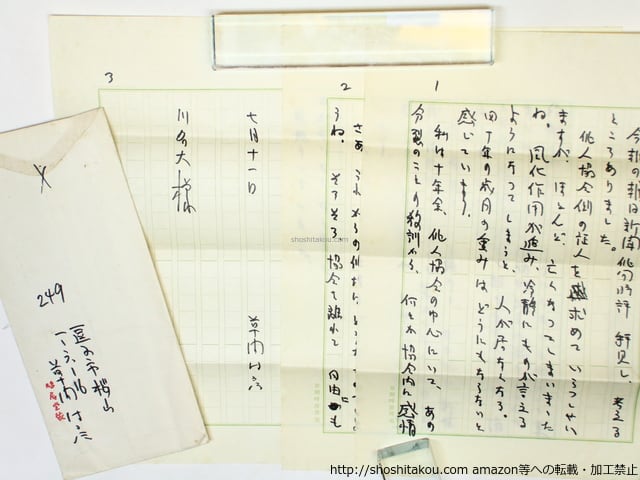 1
今朝の朝日新聞俳句時評 拝見し、考える
ところありました。
俳人協会側の証人を求めていらっしゃい
ますが、ほとんど、亡くなってしまいました
ね。風化作用が進み、冷静にもの が言える
ようになってしまうと、人が居なくなる。
四十年の歳月の重みはどうにもならないと
感じています。
私は十年余、俳人協会の中心にいて、あの
分裂のことの教訓から、何とか協会内に感情
2
さあ、これからの
うね。そろそろ、協会を離れて 自由にも
3
七月十一日
草間時彦
川名大様
249
逗子市桜山
草間時彦
shoshitakou.com
http://shoshitakou.com amazon等への転載・加工禁止